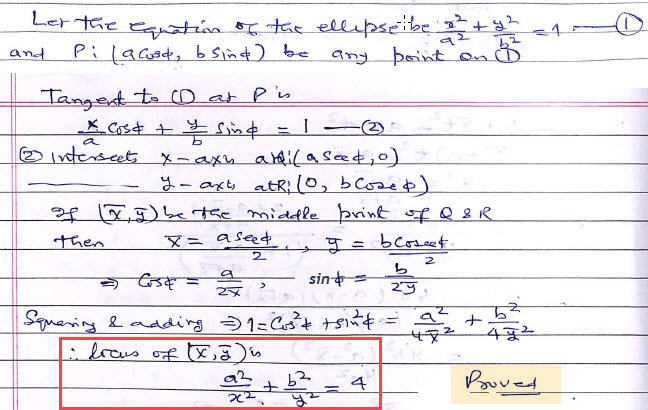 Let the equation of the ellipse be x²/a² + y²/b² = 1 — ①
and P: (a cosϕ, b sinϕ) be any point on ①
Tangent to ① at P is
x/a cosϕ + y/b sinϕ = 1 — ②
② intersects x-axis at Q: (a secϕ, 0)
——— y-axis at R: (0, b cosecϕ)
If (x̅, y̅) be the middle point of Q & R
then x̅ = a secϕ/2, y̅ = b cosecϕ/2
⇒ cosϕ = a/2x̅, sinϕ = b/2y̅
Squaring & adding ⇒ 1 = cos²ϕ + sin²ϕ = a²/4x̅² + b²/4y̅²
∴ locus of (x̅, y̅) is
a²/x² + b²/y² = 4 Proved